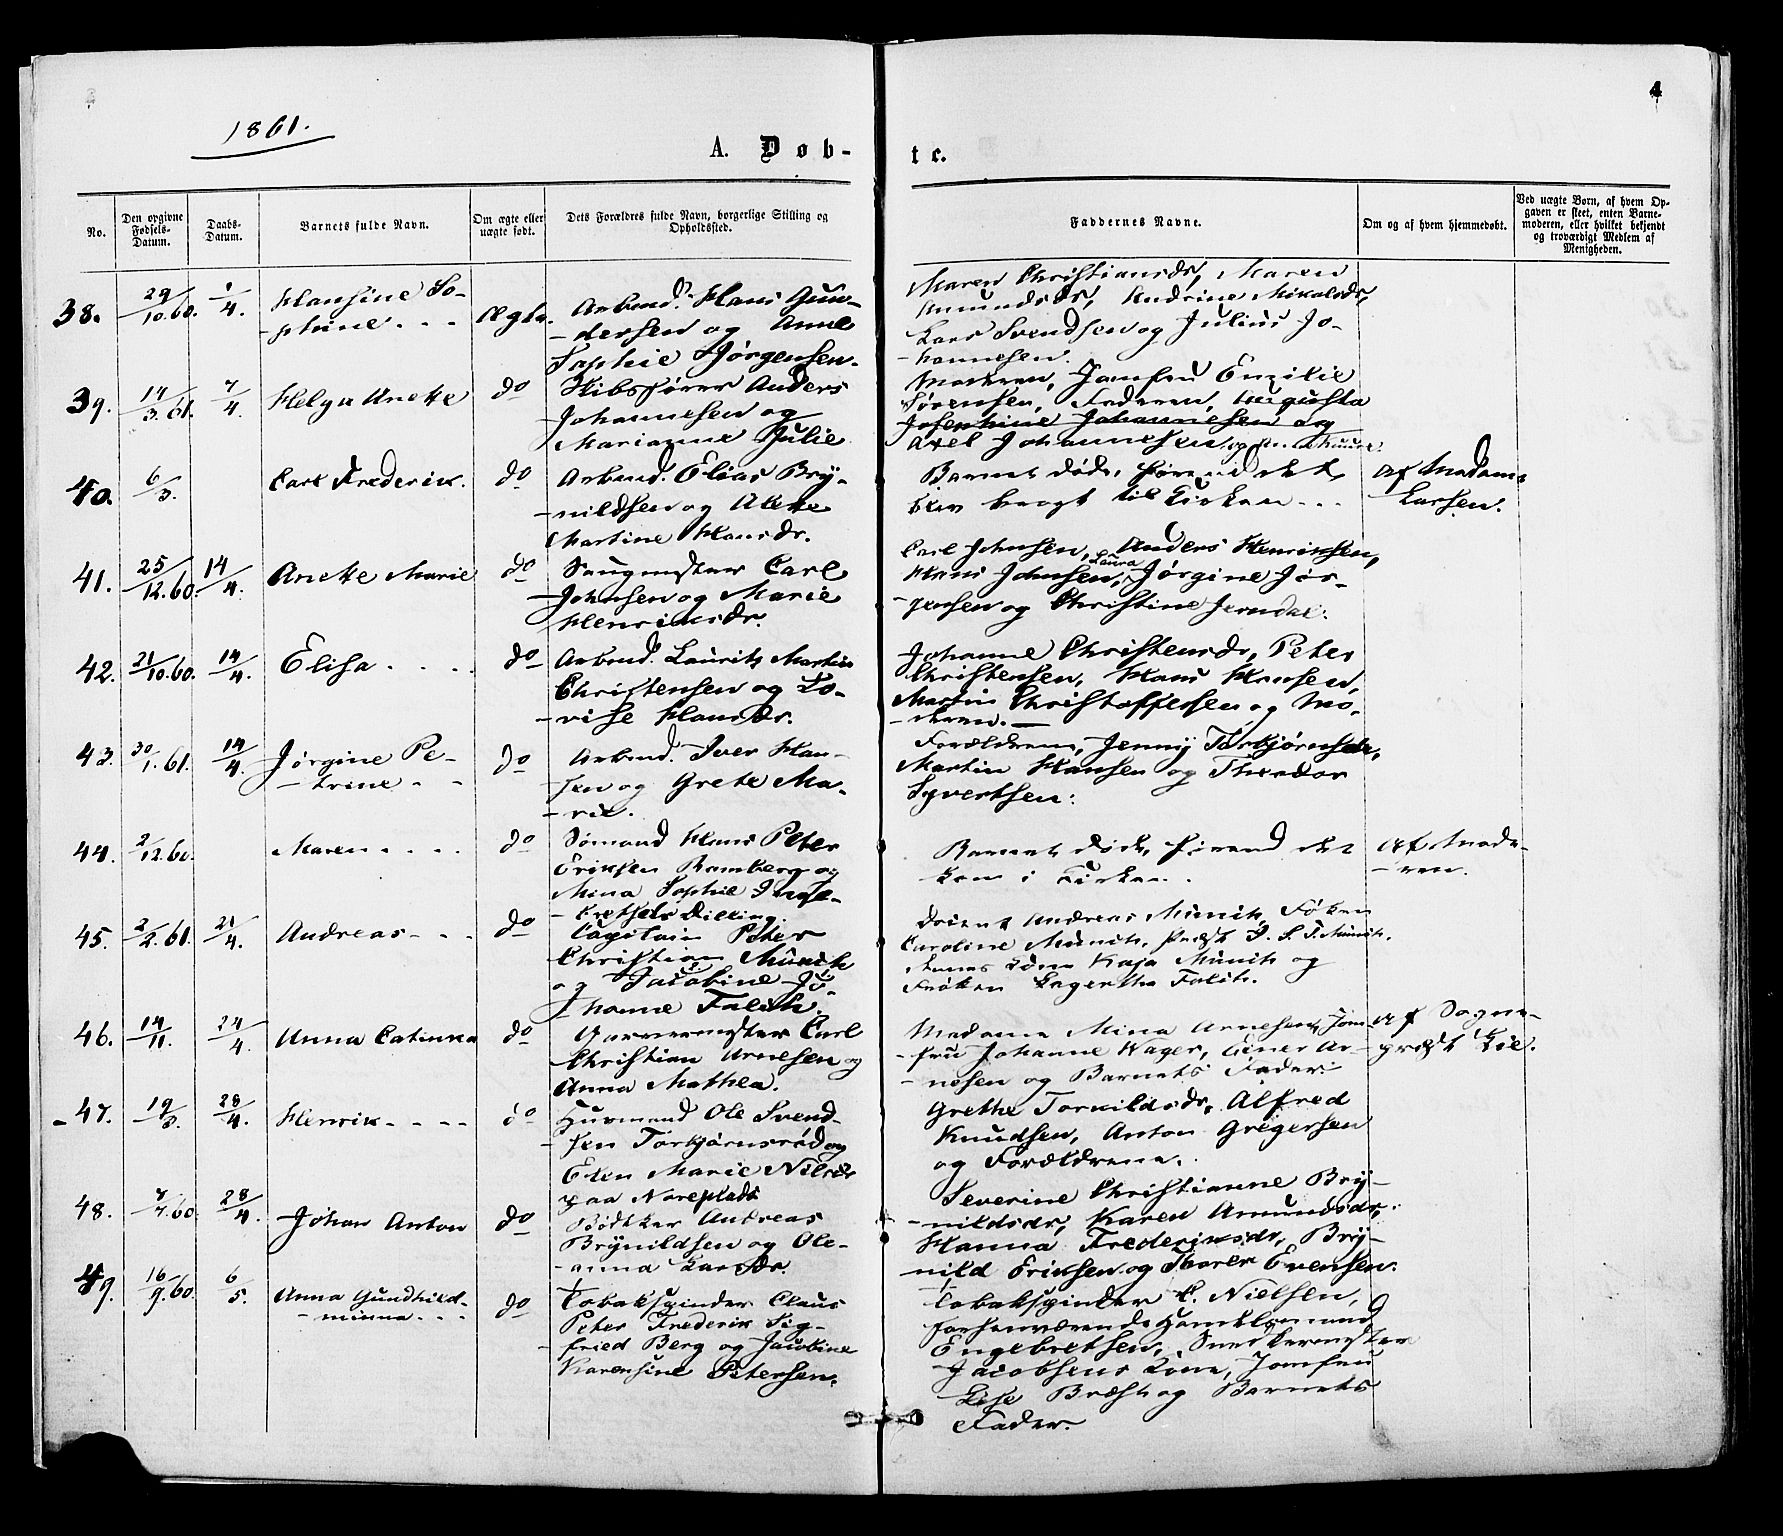 4
1861.
A. Døb-
te.
No.
Den opgivne Fødsels-Datum.
Daabs-Datum.
Barnets fulde Navn.
Om ægte eller uægte født.
Dets Forældres fulde Navn, borgerlige Stilling og Opholdssted.
Faddernes Navne.
Om og af hvem hjemmedøbt.
Ved uægte Børn, af hvem Opgaven er skeet, enten Barnemoderen, eller hvilket bekjendt og troværdigt Medlem af Menigheden.
38. 29/10.60. 1/4. Hansine So-
-phine . . . Ægte.
Arbmd. Hans Gun-
-dersen og Anne
Sophie Jørgensen.
Maren Christiansdr, Maren
Amundsdr, Andrine Nikolsdr,
Lars Svendsen og Julius Jo-
-hannesen.
39. 14/3.61. 7/4. Helga Anette do
Skibsfører Anders
Johannesen og
Marianne Julie
Moderen, Jomfru Emilie
Sørensen, Faderen, Augusta
Josephine Johannesen og
Axel Johannesen og
40. 6/3. Carl Frederik. do
Arbmd. Elias Bry-
-nildsen og Alette
Martine Hansdr.
Barnet døde, førend det
blev bragt til Kirken . . .
Af Madam
Larsen.
41. 25/12.60. 14/4. Anette Marie do
Saugmester Carl
Johnsen og Marie
Henriksdr.
Carl Johnsen, Anders Henriksen,
Hans Johnsen, Laura Jørgine Jør-
-gensen og Christine Jerndal.
42. 21/10.60. 14/4. Elisa . . . . do
Arbmd. Laurits Martin
Christensen og Lo-
-vise Hansdr.
Johanne Christensdr, Peter
Christensen, Hans Hansen,
Martin Christoffersen og Mo-
-deren.
43. 30/1.61. 14/4. Jørgine Pe-
-trine - - do
Arbmd. Iver Han-
-sen og Grete Ma-
-rie.
Forældrene, Jenny Torkjørnsdr,
Martin Hansen og Theodor
Syvertsen.
44. 2/12.60. Maren . . . . do
Sømand Hans Peter
Eriksen Ramberg og
Mina Sophie Ingle-
-bretsdr Dilling.
Barnet døde, førend det
kom i Kirken.
Af Mode-
-ren.
45. 2/2.61. 21/4. Andreas - - - do
Capitain Peter
Christian Münch
og Jacobine Jo-
-hanne Falch.
Andreas Münch, Frøken
Caroline Münch, Præst J. S. T. Münch,
Hans Kone Kaja Münch og
Frøken Lagertha Falch.
46. 14/11. 24/4. Anna Catinka do
Garvermester Carl
Christian Arnesen og
Anna Mathea.
Madame Mina Arnesen, Jom-
-fru Johanne Wager, Einer Ar-
-nesen og Barnets Fader.
Af Sogne-
præst Kiel.
47. 19/3. 28/4. Henrik - - - - do
Huusmand Ole Svend-
-sen Torkjørnsrød og
Ellen Marie Nilsdr
paa Noreplads
Grethe Torkildsdr, Alfred
Knudsen, Anton Gregersen
og Forældrene.
48. 7/7.60. 28/4. Johan Anton do
Bødtker Andreas
Brynildsen og Ole-
-anna Larsdr.
Severine Christianne Bry-
-nildsdr, Karen Amundsdr,
Hanna Frederiksdr, Bry-
-nild Eriksen og Thorer Evensen.
49. 16/9.60. 6/5. Anna Gundhild-
-minna . . . do
Tobakspinder Claus
Peter Frederik Sig-
-fried Berg og Jacobine
Karensine Petersen.
Tobakspinder C. Nielsen,
forhenværende Handelsmand
Engebretsen, Snedkermester
Jacobsens Kone, Jomfru
Lise Bræst og Barnets
Fader.